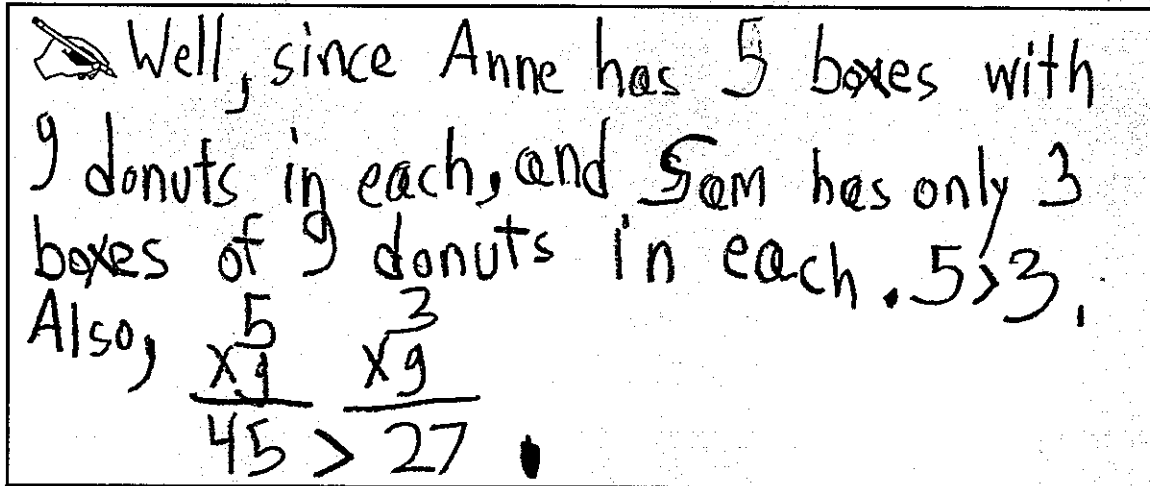 Well, since Anne has 5 boxes with
9 donuts in each, and Sam has only 3
boxes of 9 donuts in each. 5>3.
Also, 5 3
x9 x9
45 > 27.